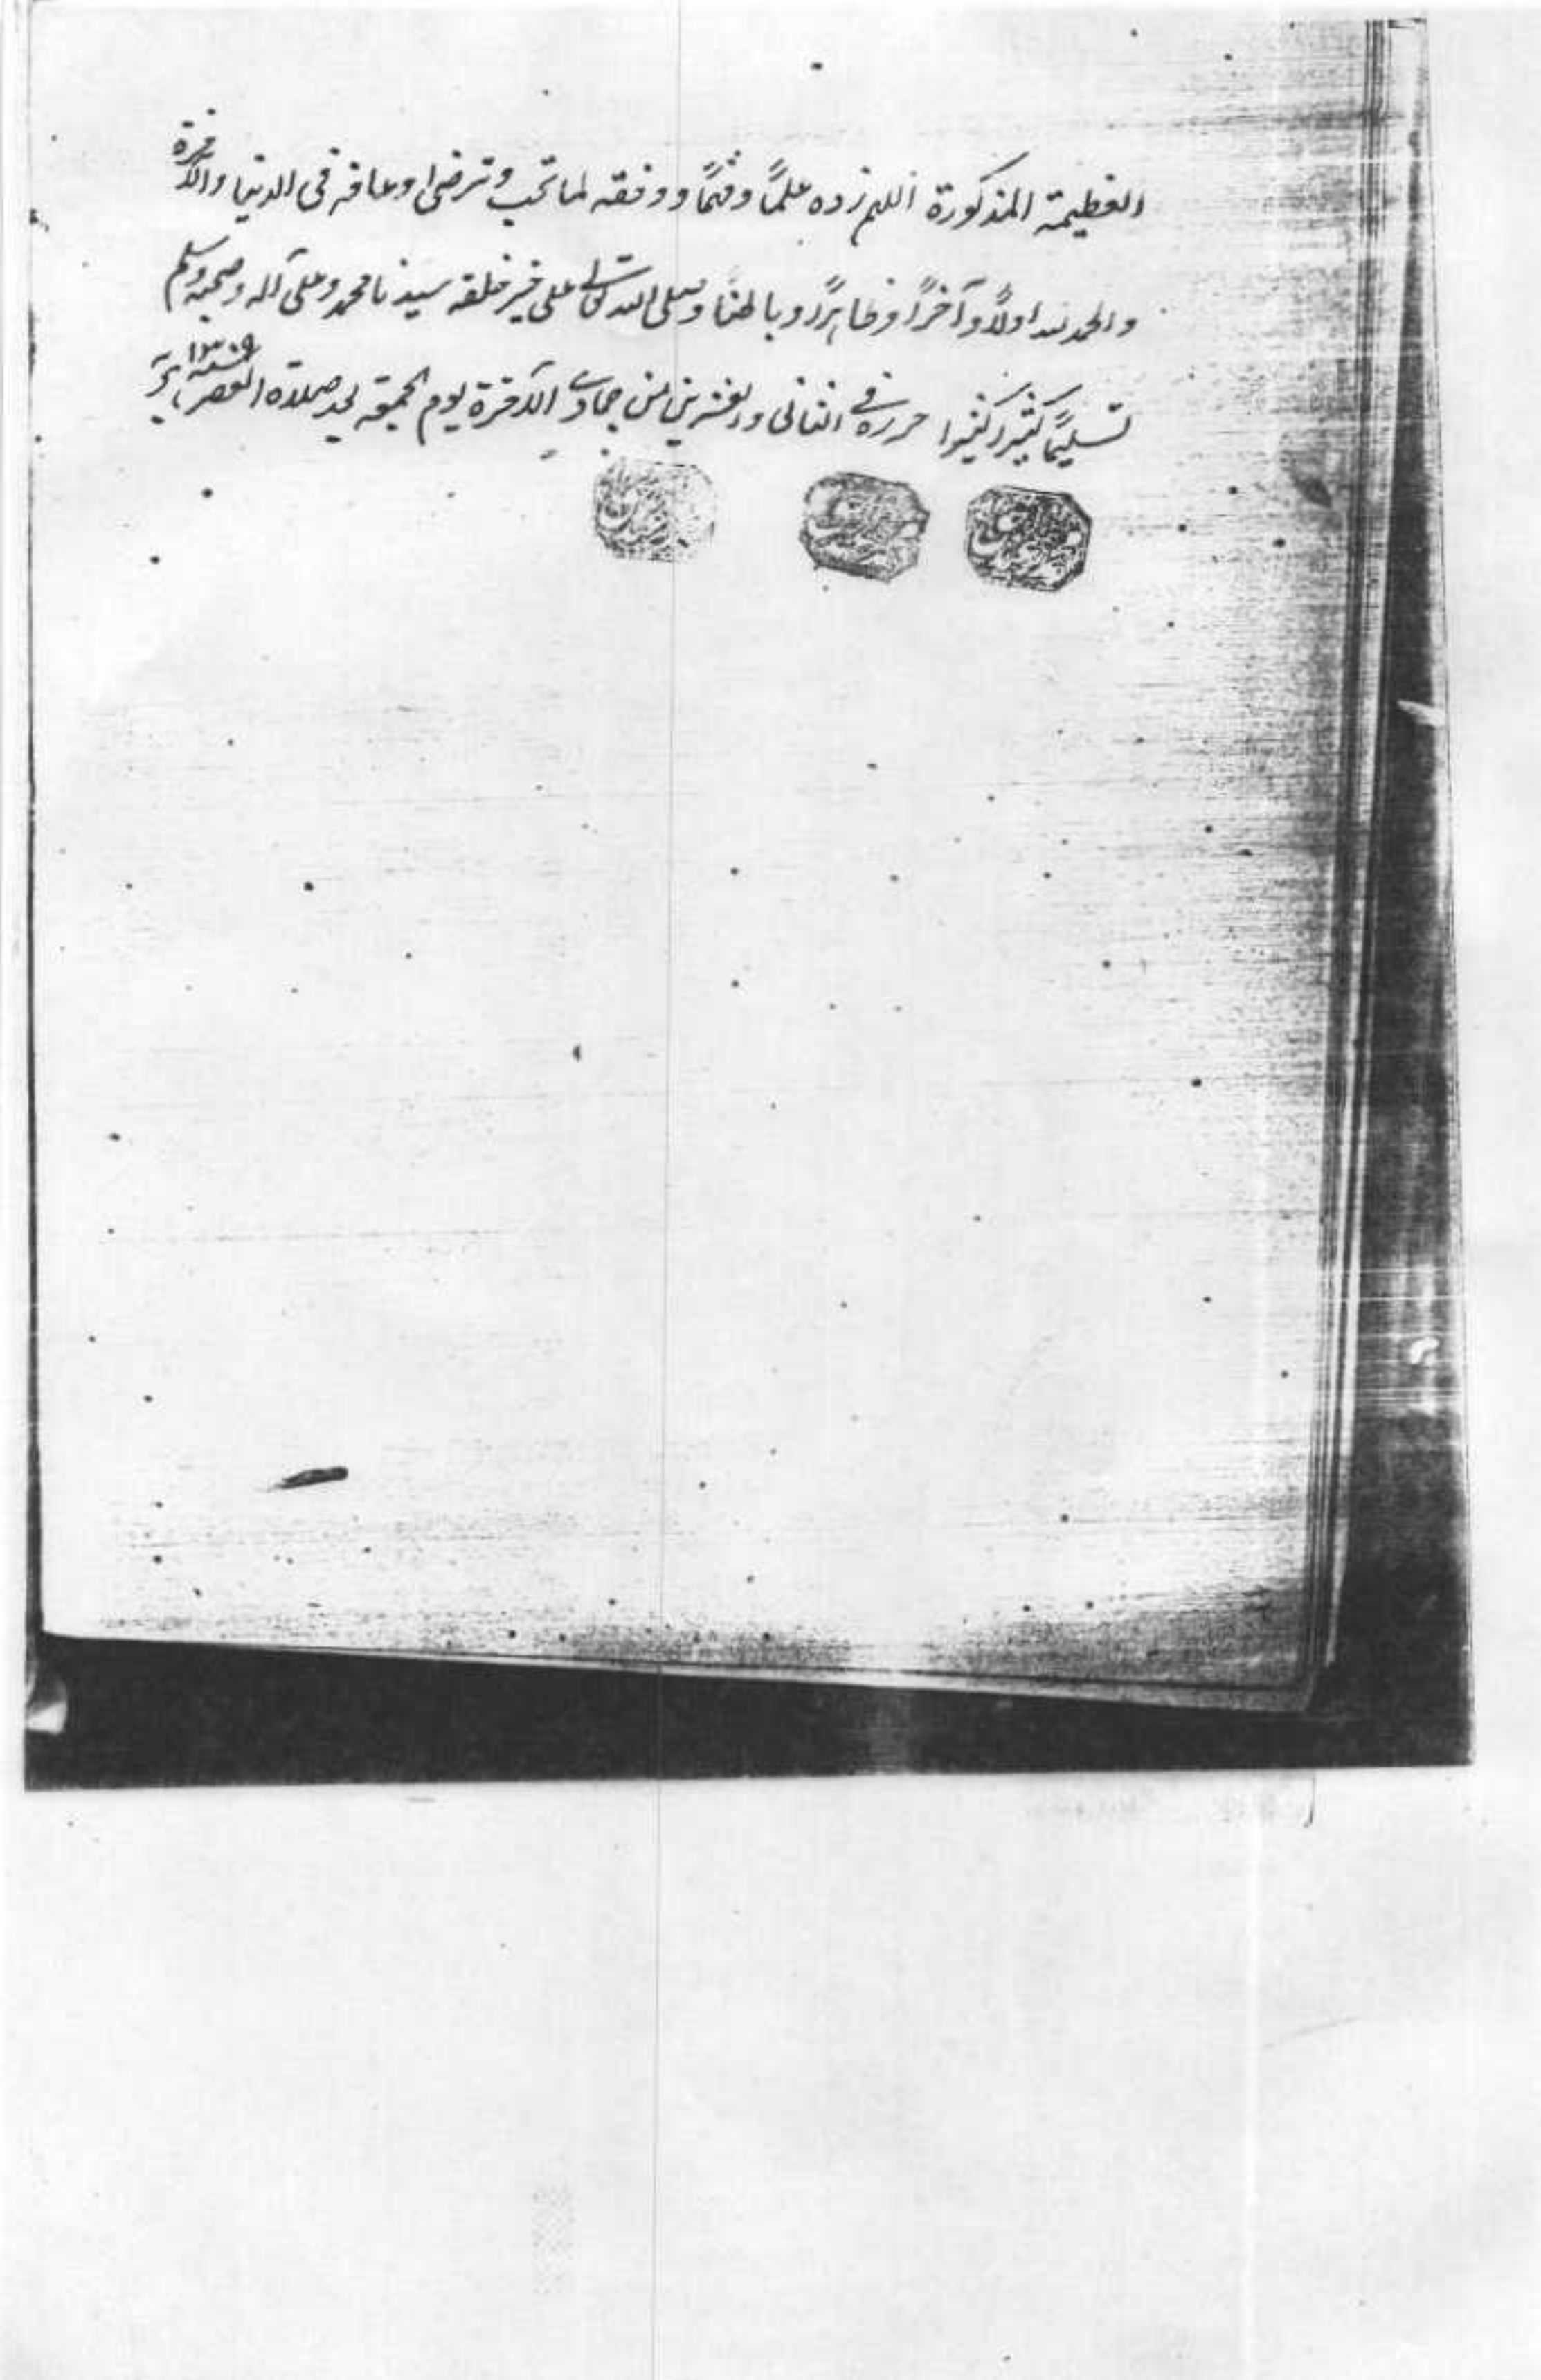 العظيمة المذكورة اللهم زده علمًا وفهمًا ووفقه لما تحب وترضى وعافه فى الدنيا والآخرة
والحمد لله اولاً وآخرًا وظاهرًا وباطنًا وصلى الله تعالى على خير خلقه سيدنا محمد وعلى آله وصحبه وسلم
تسليمًا كثيرا كثيرا حرره فى الثانى والعشرين من جمادى الآخرة يوم الجمعة بعد صلاة العصر